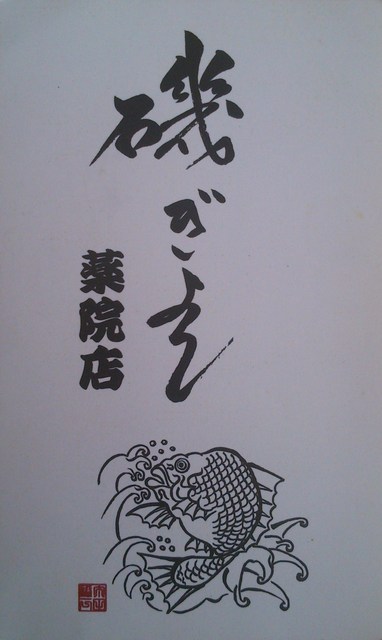 磯ぎよし
薬院店